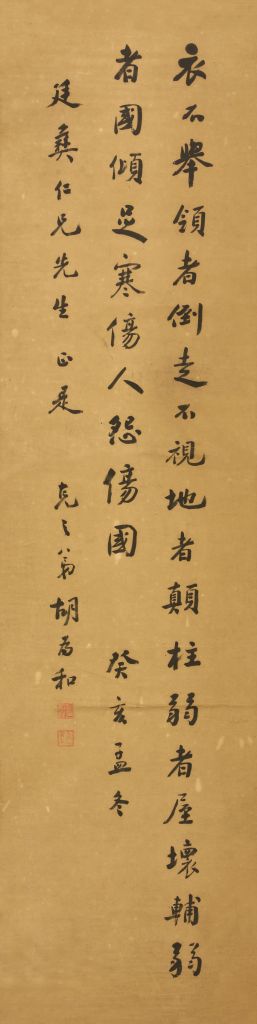 衣不舉領者倒走不視地者顛柱弱者屋壞輔弱
者國傾足寒傷人怨傷國 癸亥孟冬
廷彝仁兄先生 正是 克之翁胡嗣和